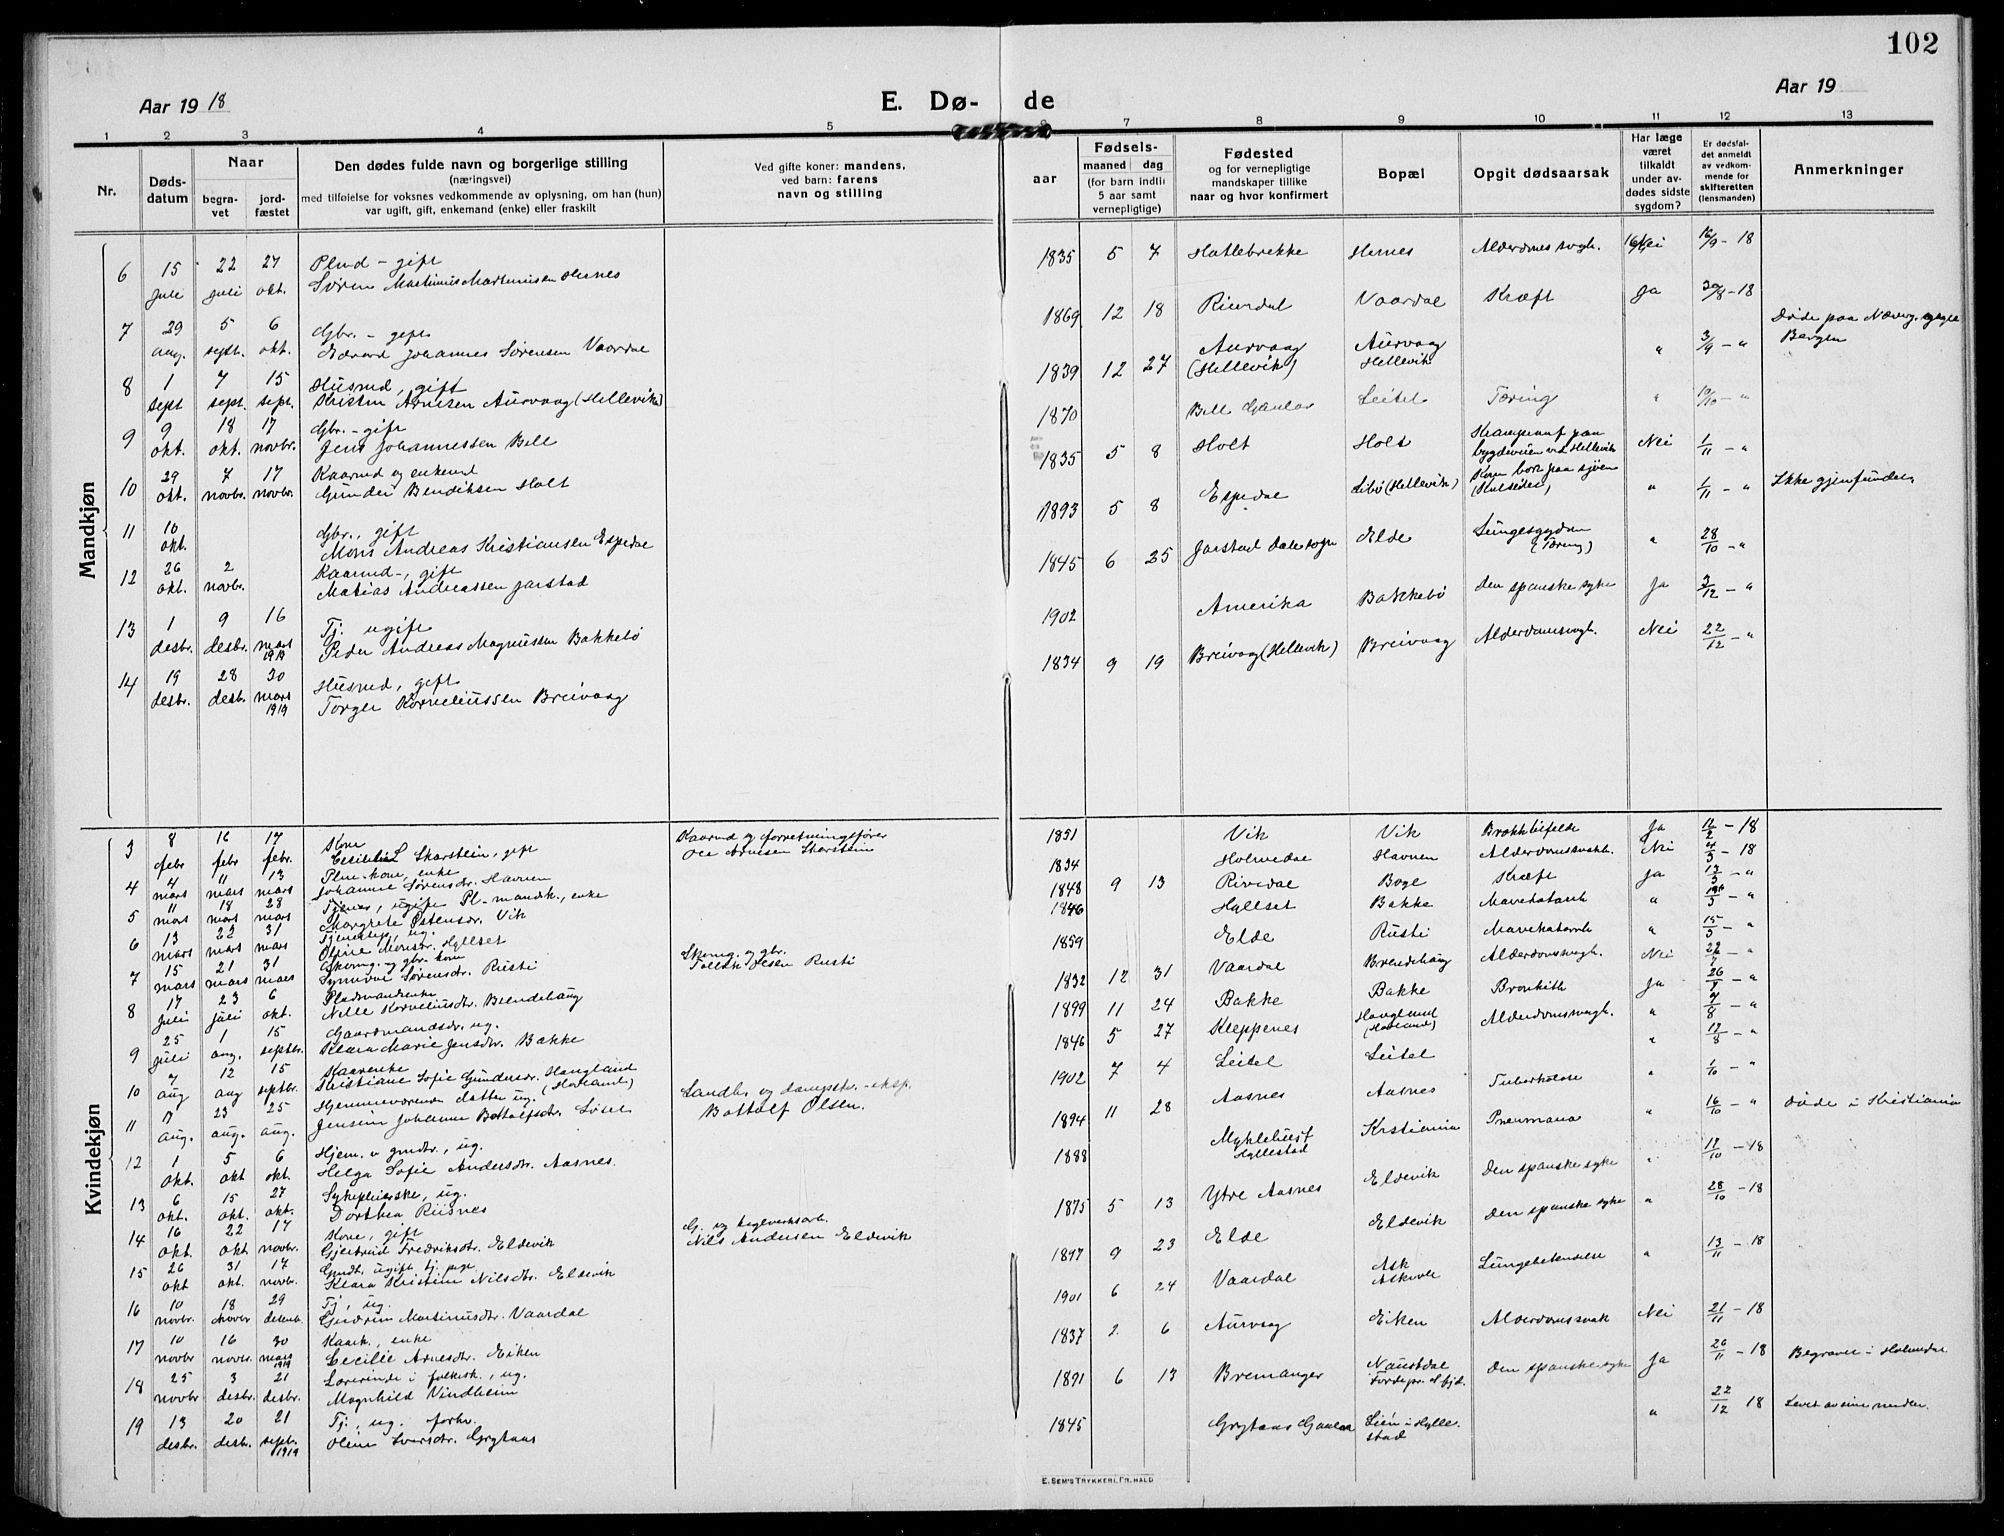 102
Aar 1918
E. Dø- de
Aar 19
1 2 3 4 5 6 7 8 9 10 11 12 13
Nr.
Døds-
datum
Naar
begra-
vet
jord-
fæstet
Den dødes fulde navn og borgerlige stilling
(næringsvei)
med tilføielse for voksnes vedkommende av oplysning, om han (hun)
var ugift, gift, enkemand (enke) eller fraskilt
Ved gifte koner: mandens,
ved barn: farens
navn og stilling
aar
Fødsels-
maaned dag
(for barn indtil
5 aar samt
vernepligtige)
Fødested
og for vernepligtige
mandskaper tillike
naar og hvor konfirmert
Bopæl
Opgit dødsaarsak
Har læge
været
tilkaldt
under av-
dødes sidste
sygdom?
Er dødsfal-
det anmeldt
av vedkom-
mende for
skifteretten
(lensmanden)
Anmerkninger
Mandkjøn
6 15 juli 22 juli 27 okt. Plmd - gift
Søren Martinius Martinussen Hernes
1835 5 7 Hatlebrekke Hernes Alderdomssvagh. Nei 16/9 - 18
7 29 aug. 5 sept. 6 okt. Gbr. - gift
Edvard Johannes Sørensen Vaardal
1869 12 18 Riverdal Vaardal Kræft Ja 30/8 - 18
Døde paa
Bergen
8 1 sept 7 sept. 15 sept. Husmd, gift
Kristen Arnesen Aurvaag (Hellevik)
1839 12 27 Aurvaag (Hellevik) Aurvaag Hellevik " 3/9 - "
9 9 okt. 18 okt. 17 novbr. Gbr. - gift
Jens Johannessen Bell
1870 Bell Gaular Leitel Tæring " 10/10 - "
10 29 okt. 7 novbr. 17 novbr. Kaarmd og enkemd
Gunder Bendiksen Holt
1835 5 8 Holt Holt bygdeveien ved Hellevik Nei 1/11 - "
11 10 okt. Gbr., gift
Mons Andreas Kristiansen Espedal
1893 5 8 Espedal Libø (Hellevik) Kom bort paa sjøen " 1/11 - " Ikke gjenfunden
12 26 okt. 2 novbr. Kaarmd -, gift
Matias Andreassen Jarstad
1845 6 25 Jarstad Dale sogn Elde Lungesygdom (Tæring) " 28/10 - "
13 1 desbr. 9 desbr. 16 mars 1919 Tj. ugift
Peder Andreas Magnussen Bakkebø
1902 Amerika Bakkebø Den spanske syke Ja 3/12 - "
14 19 desbr. 28 desbr. 30 mars 1919 Husmd, gift
Torger Korneliussen Breivaag
1834 9 19 Breivaag (Hellevik) Breivaag Alderdomssvagh. Nei 22/12 - "
Kvindekjøn
3 8 febr 16 febr 17 febr. Kone
Skarstein, gift
Kaarmd og forretningsfører
Ole Arnesen Skarstein
1851 Vik Vik Ja 12/2 - 18
4 4 mars 11 mars 13 mars Plm-kone, enke
Johanne Sørensdr. Havnen
1834 Holmedal Havnen Alderdomssvakh. Nei 4/3 - 18
5 11 mars 18 mars 28 mars Pl-mandk., enke
Margrete Østensdr. Vik
1848 9 13 Rivedal Boge Kræft Ja 12/3 - "
6 13 mars 22 mars 31 mars Tjenestep, ug.
Oline Monsdr. Hyllset
1846 Hyllset Bakke Mavekatarrh " 19/3 - "
7 15 mars 21 mars 31 mars Skomg. og gbr. kone
Synnøve Sørensdr. Rusti
Skomg. og gbr.
Tollak Olsen Rusti
1859 Elde Rusti Mavekatarrh " 15/3 - "
8 17 juli 23 juli 6 okt. Pladsmandsenke
Nille Korneliusdtr. Blendehaug
1832 12 31 Vaardal Brendehaug Alderdomssvagh. Nei 22/7 - "
9 25 juli 1 aug. 15 septbr. Gaardmandsdtr, ug.
Klara Marie Jensdtr. Bakke
1899 11 24 Bakke Bakke Bronkith Ja 26/7 - "
10 7 aug 12 aug 15 septbr. Kaarenke
Kristiane Sofie Gundersdr. Haugland (Holland)
1846 5 27 Kleppenes Haugland Alderdomssvagh. " 9/8 - "
11 17 aug. 23 aug. 25 aug. Hjemmeværende datter ug.
Jensine Johanne Bottolfsdr. Leitel
Landh. og dampsk. - eksp.
Bottolf Olsen.
1902 7 4 Leitel Leitel " 17/8 - "
12 1 okt. 5 okt 6 okt. Hjem. v gmdtr, ug.
Helga Sofie Andersdtr. Aasnes.
1894 11 28 Aasnes Aasnes Tuberkulose " 1/10 - "
13 6 okt. 15 okt. 27 okt. Sykepleierske, ug.
Dorthea Riisnes
1888 Myklebust Hyllestad Krstiania Pneumonia " 16/10 - " Døde i Kristiania
14 16 okt 22 okt 17 novbr. Kone, gift
Gjertrud Fredriksdtr. Eldevik
G. og teglverksarb.
Nils Andersen Eldevik
1875 5 13 Ytre Aasnes Eldevik Den spanske syke " 17/10 - 18
15 26 okt 31 okt. 17 novbr. Gmdt, ugift tj. pige
Klara Kristine Nilsdtr. Eldevik
1897 9 23 Elde Eldevik Den spanske syke " 28/10 - 18
16 10 novbr. 18 novbr 29 desemb. Tj, ug.
Gudrun Martinusdtr. Vaardal
1901 6 24 Vaardal Ask Askvoll Lungebetendelse " 13/11 - 18
17 10 novbr 16 novbr. 30 mars 1919 Kaark, enke
Cecilie Arnesdtr. Eiken
1837 2 6 Aurvaag Eiken Alderdomssvak Nei 21/11 - 18
18 25 novbr 3 desbr. 21 desbr. Lærerinde i folkesk., ug.
Magnhild Vindheim
1891 6 13 Bremanger Naustdal Førdepr. Den spanske syke Ja 26/11 - 18 Begravet i Holmedal
19 13 desbr. 20 desb. 21 septb. 1919 Tj, ug. forh.
Oline Ivarsdtr. Grytaas
1845 Grytaas Gaular Lien i Hyllestad " 22/12 18
E. SEM'S TRYKKERI, FR.HALD